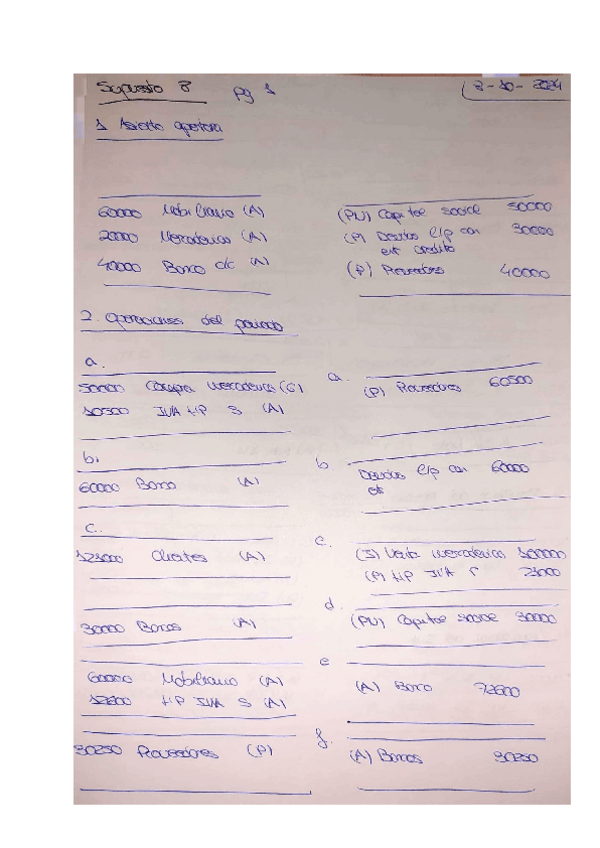 Supuesto 8 pg 1 2-10-2024
1 Asiento apertura
60000 Mobiliario (A) (PN) Capital social 50000
20000 Mercaderias (A) (P) Deudas l/p con 30000
ent credito
40000 Banco c/c (A) (P) Proveedores 40000
2. Operaciones del periodo
a. a.
50000 Compra mercaderias (G) (P) Proveedores 60500
10500 IVA HP S (A)
b. b.
60000 Banco (A) Deudas l/p con 60000
ent
c. c.
121000 Clientes (A) (I) Venta mercaderias 100000
(P) HP IVA r 21000
d.
30000 Bancos (A) (PN) Capital social 30000
e
60000 Mobiliario (A) (A) Banco 72600
12600 HP IVA S (A)
f.
30250 Proveedores (P) (A) Bancos 30250